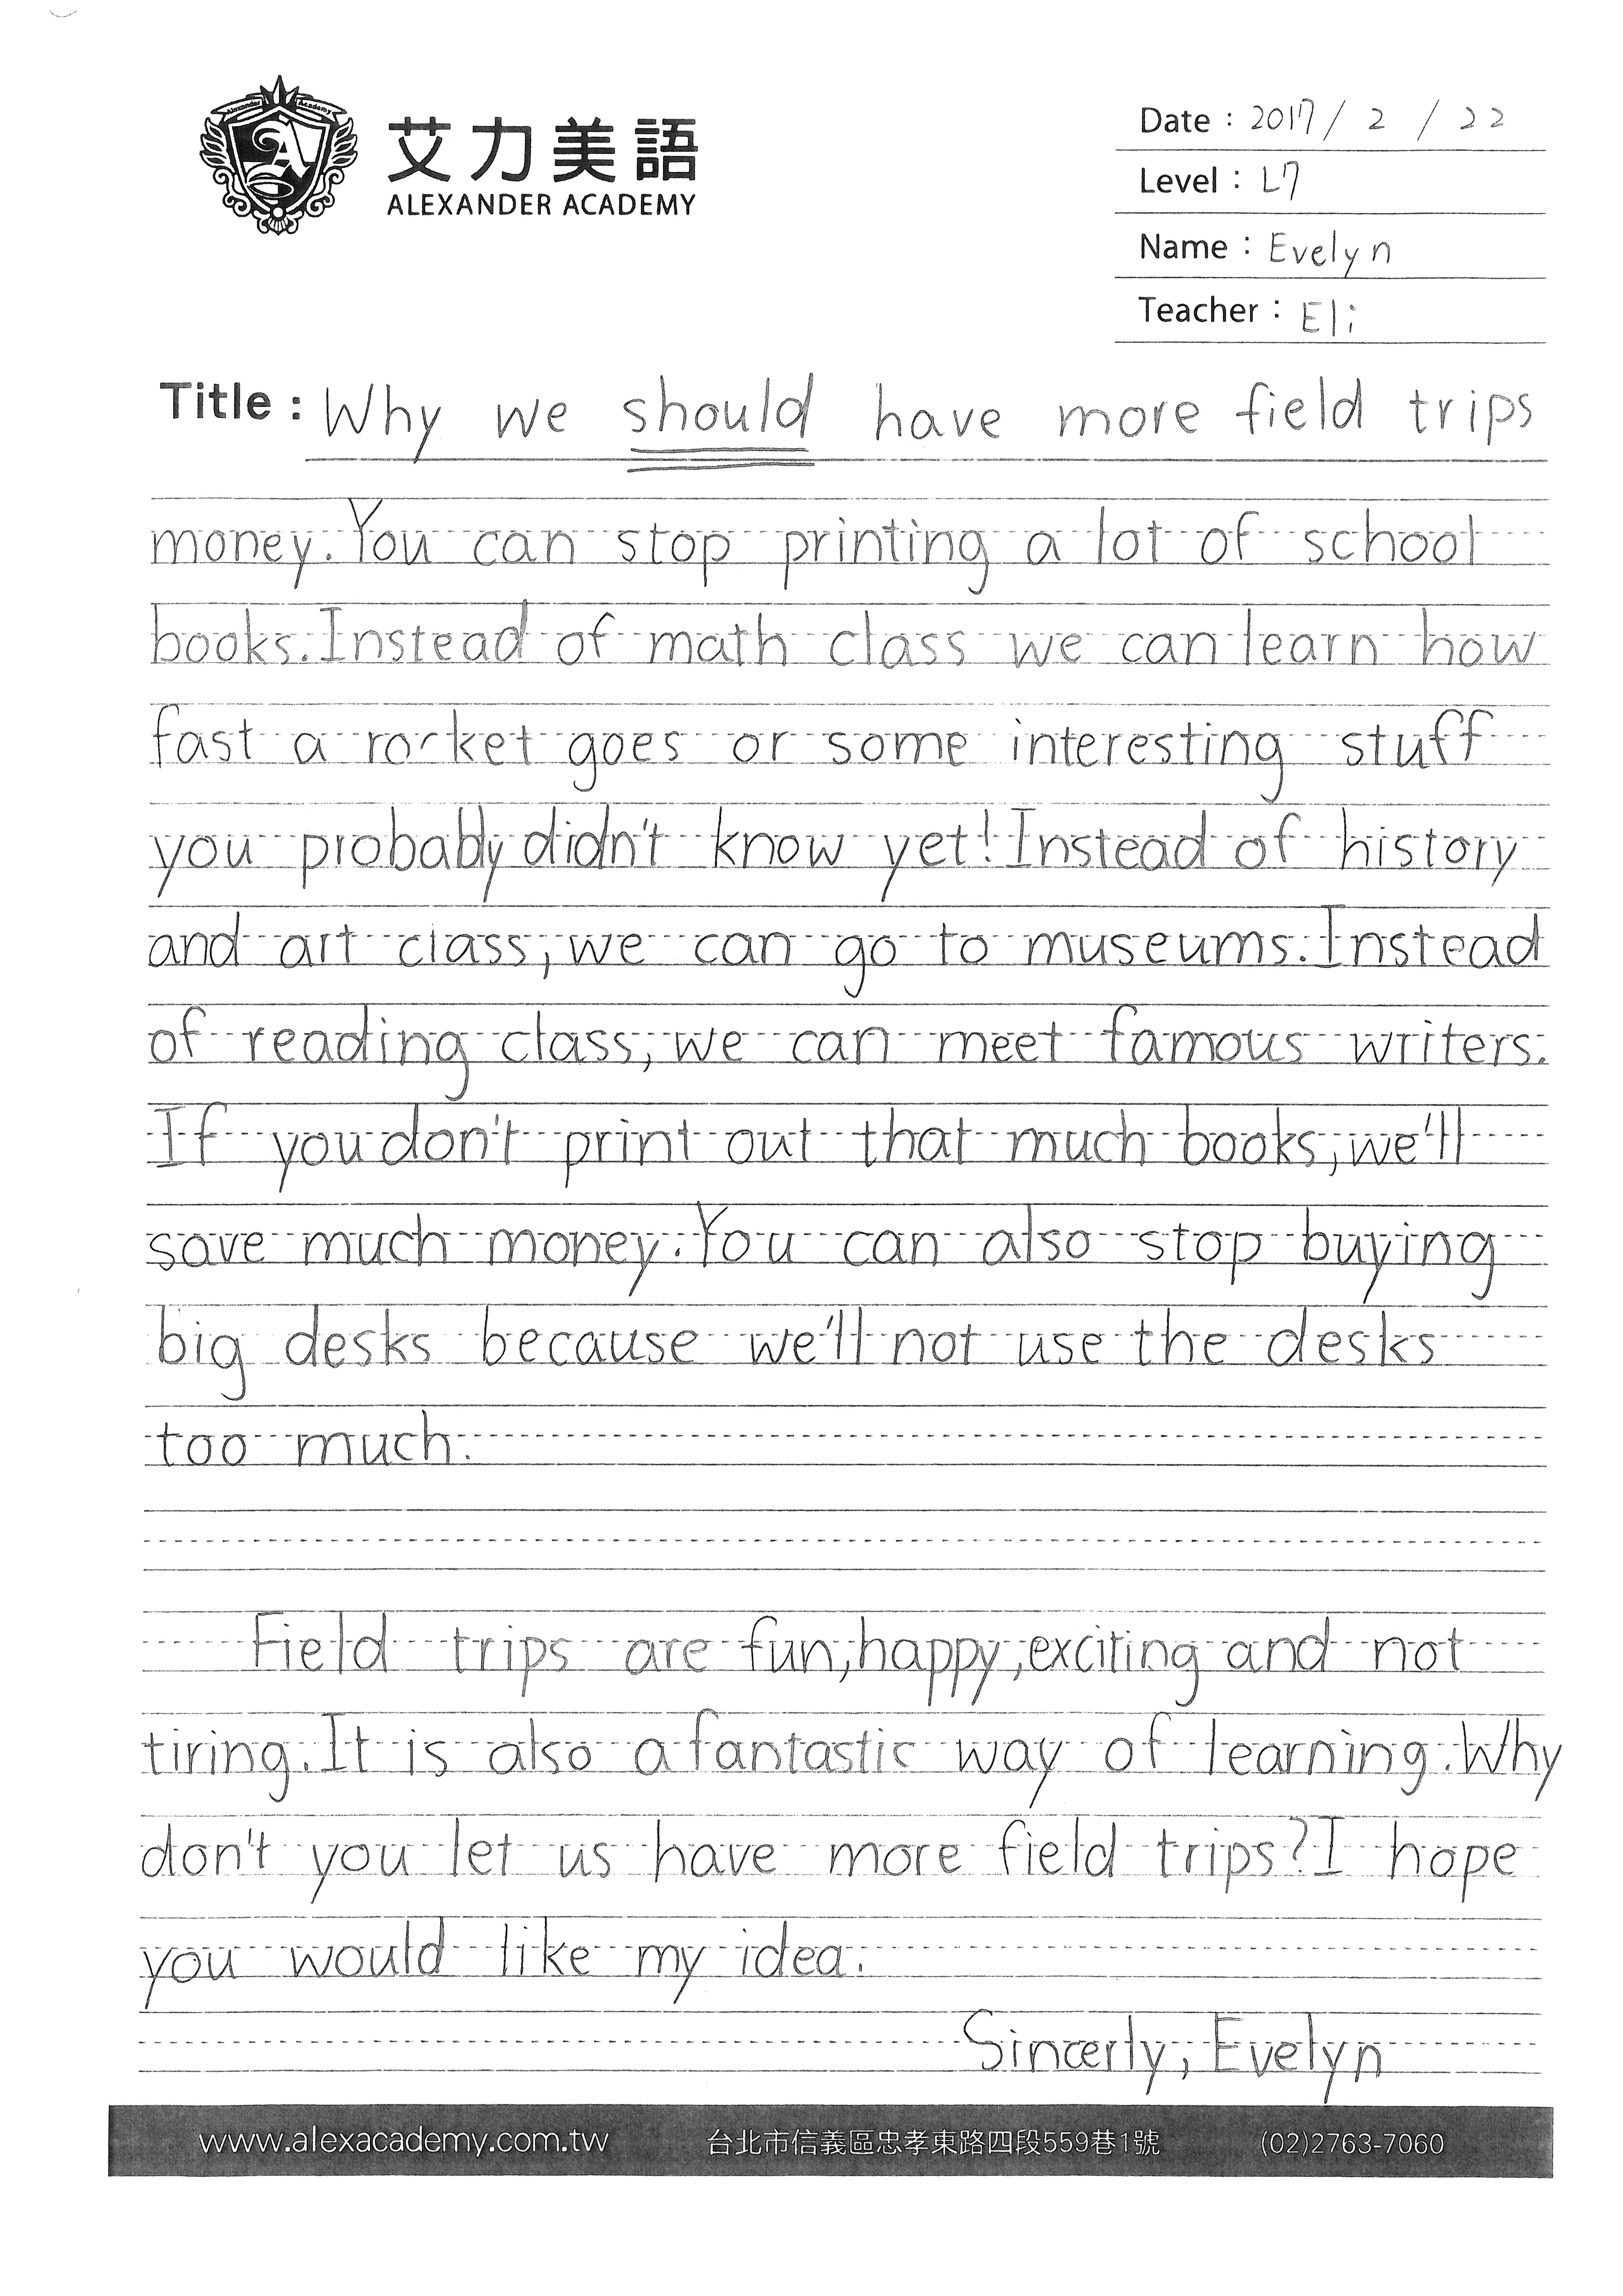 艾力美語
ALEXANDER ACADEMY
Alexander Academy
Date : 2017 / 2 / 22
Level : L7
Name : Evelyn
Teacher : Eli
Title : Why we should have more field trips
money. You can stop printing a lot of school
books. Instead of math class we can learn how
fast a rocket goes or some interesting stuff
you probably didn't know yet! Instead of history
and art class, we can go to museums. Instead
of reading class, we can meet famous writers.
If you don't print out that much books, we'll
save much money. You can also stop buying
big desks because we'll not use the desks
too much.
Field trips are fun, happy, exciting and not
tiring. It is also a fantastic way of learning. Why
don't you let us have more field trips? I hope
you would like my idea.
Sincerly, Evelyn
www.alexacademy.com.tw 台北市信義區忠孝東路四段559巷1號 (02)2763-7060